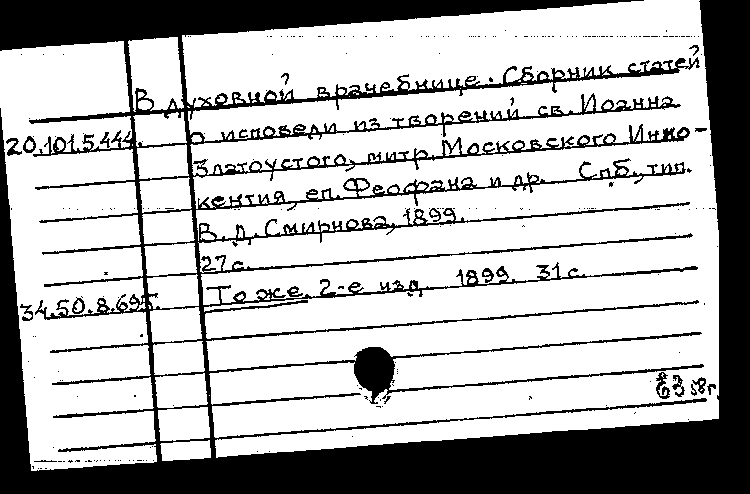 В духовной врачебнице. Сборник статей
20.101.5.444. о исповеди из творений св. Иоанна
Златоустого, митр. Московского Инно-
кентия, еп. Феофана и др. Спб., тип.
В. Д. Смирнова, 1899.
27 с.
34.50.8.695. То же. 2-е изд. 1899. 31 с.